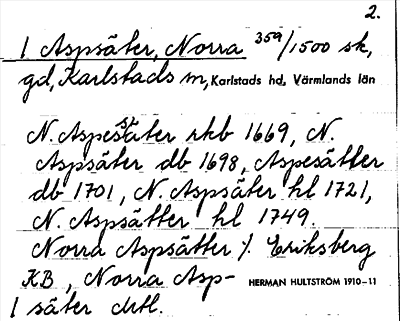 2.
1 Aspsäter, Norra 359/1500 sk,
gd, Karlstads m, Karlstads hd, Värmlands län
N. Aspesäter rkb 1669, N.
Aspsäter db 1698, Aspesätter
db 1701, N. Aspsäter hl 1721,
N. Aspsätter hl 1749.
Norra Aspsätter /. Eriksberg
KB, Norra Asp-
HERMAN HULTSTRÖM 1910-11
1 säter drtl.